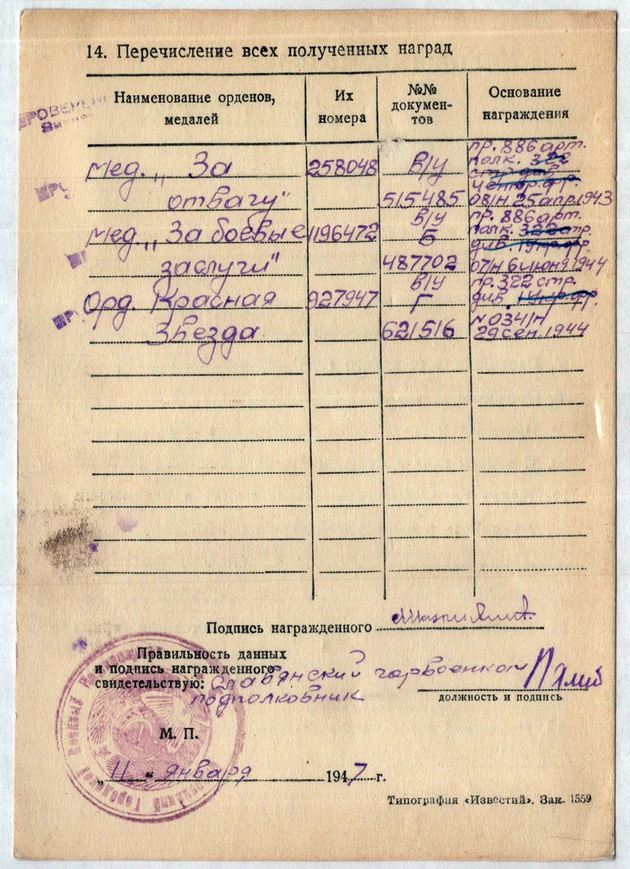 14. Перечисление всех полученных наград
Наименование орденов, медалей
Их номера
№№ документов
Основание награждения
ПРОВЕРЕНО
Мед. „За отвагу"
258048
В/у
515485
пр. 886 арт.
полк. 322
08/Н 25 апр 1943
Мед. „За боевые заслуги"
1196472
В/у
Б
487702
пр. 886 арт.
полк. 322 стр.
див.
07/Н 6 июня 1944
Орд. Красная Звезда
927947
В/у
Г
621516
пр. 322 стр.
див.
N 034/Н
29 сен. 1944
Подпись награжденного
Правильность данных
и подпись награжденного
свидетельствую: Славянский горвоенком
подполковник
должность и подпись
М. П.
„ 11 " января 1947 г.
Типография «Известий». Зак. 1559